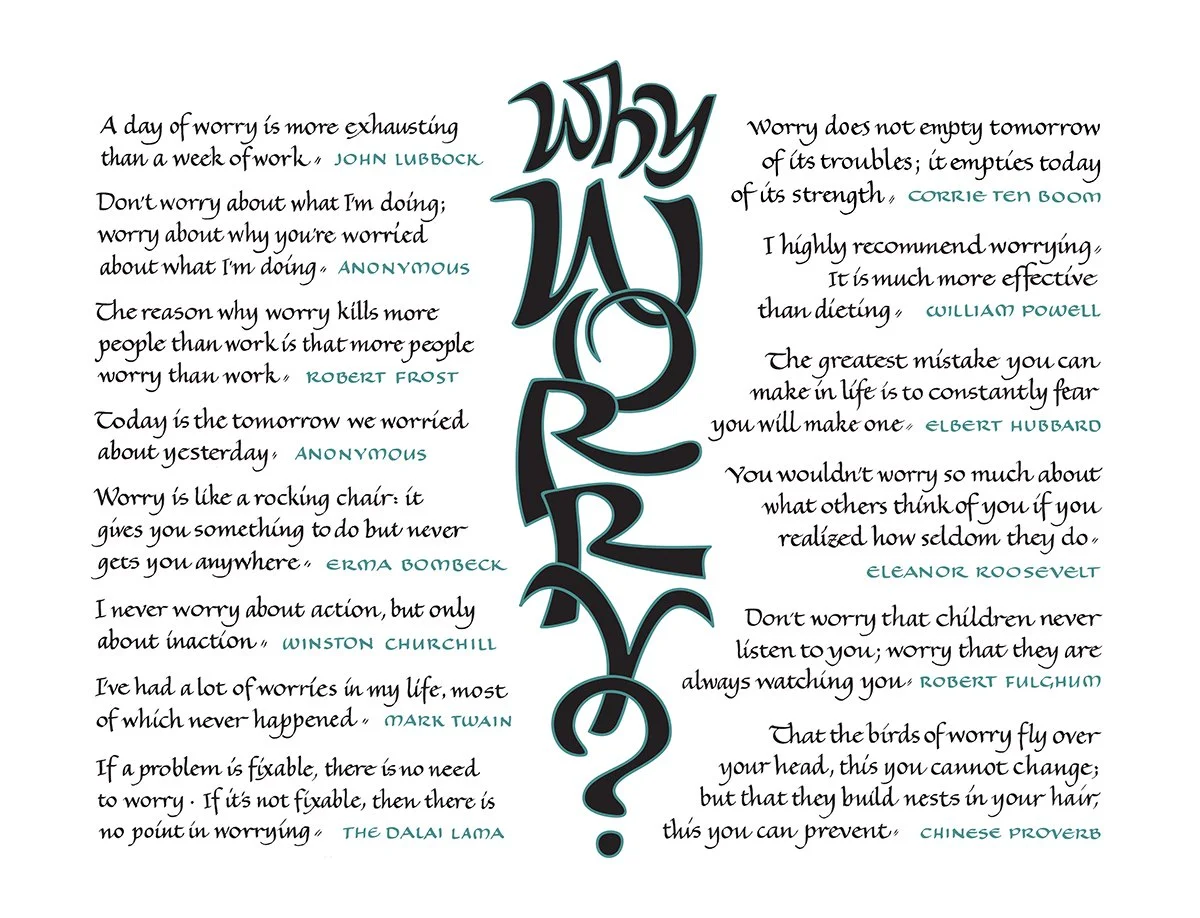 Why
WORRY?
A day of worry is more exhausting
than a week of work〃 JOHN LUBBOCK
Don't worry about what I'm doing;
worry about why you're worried
about what I'm doing〃 ANONYMOUS
The reason why worry kills more
people than work is that more people
worry than work〃 ROBERT FROST
Today is the tomorrow we worried
about yesterday〃 ANONYMOUS
Worry is like a rocking chair: it
gives you something to do but never
gets you anywhere〃 ERMA BOMBECK
I never worry about action, but only
about inaction〃 WINSTON CHURCHILL
I've had a lot of worries in my life, most
of which never happened〃 MARK TWAIN
If a problem is fixable, there is no need
to worry · If it's not fixable, then there is
no point in worrying〃 THE DALAI LAMA
Worry does not empty tomorrow
of its troubles; it empties today
of its strength〃 CORRIE TEN BOOM
I highly recommend worrying〃
It is much more effective
than dieting〃 WILLIAM POWELL
The greatest mistake you can
make in life is to constantly fear
you will make one〃 ELBERT HUBBARD
You wouldn't worry so much about
what others think of you if you
realized how seldom they do〃
ELEANOR ROOSEVELT
Don't worry that children never
listen to you; worry that they are
always watching you〃 ROBERT FULGHUM
That the birds of worry fly over
your head, this you cannot change;
but that they build nests in your hair,
this you can prevent〃 CHINESE PROVERB